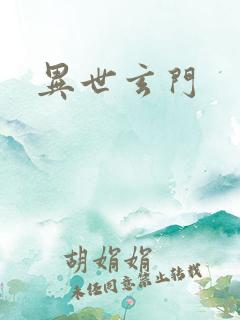 異世玄門
胡娟娟
未经同意禁止转载